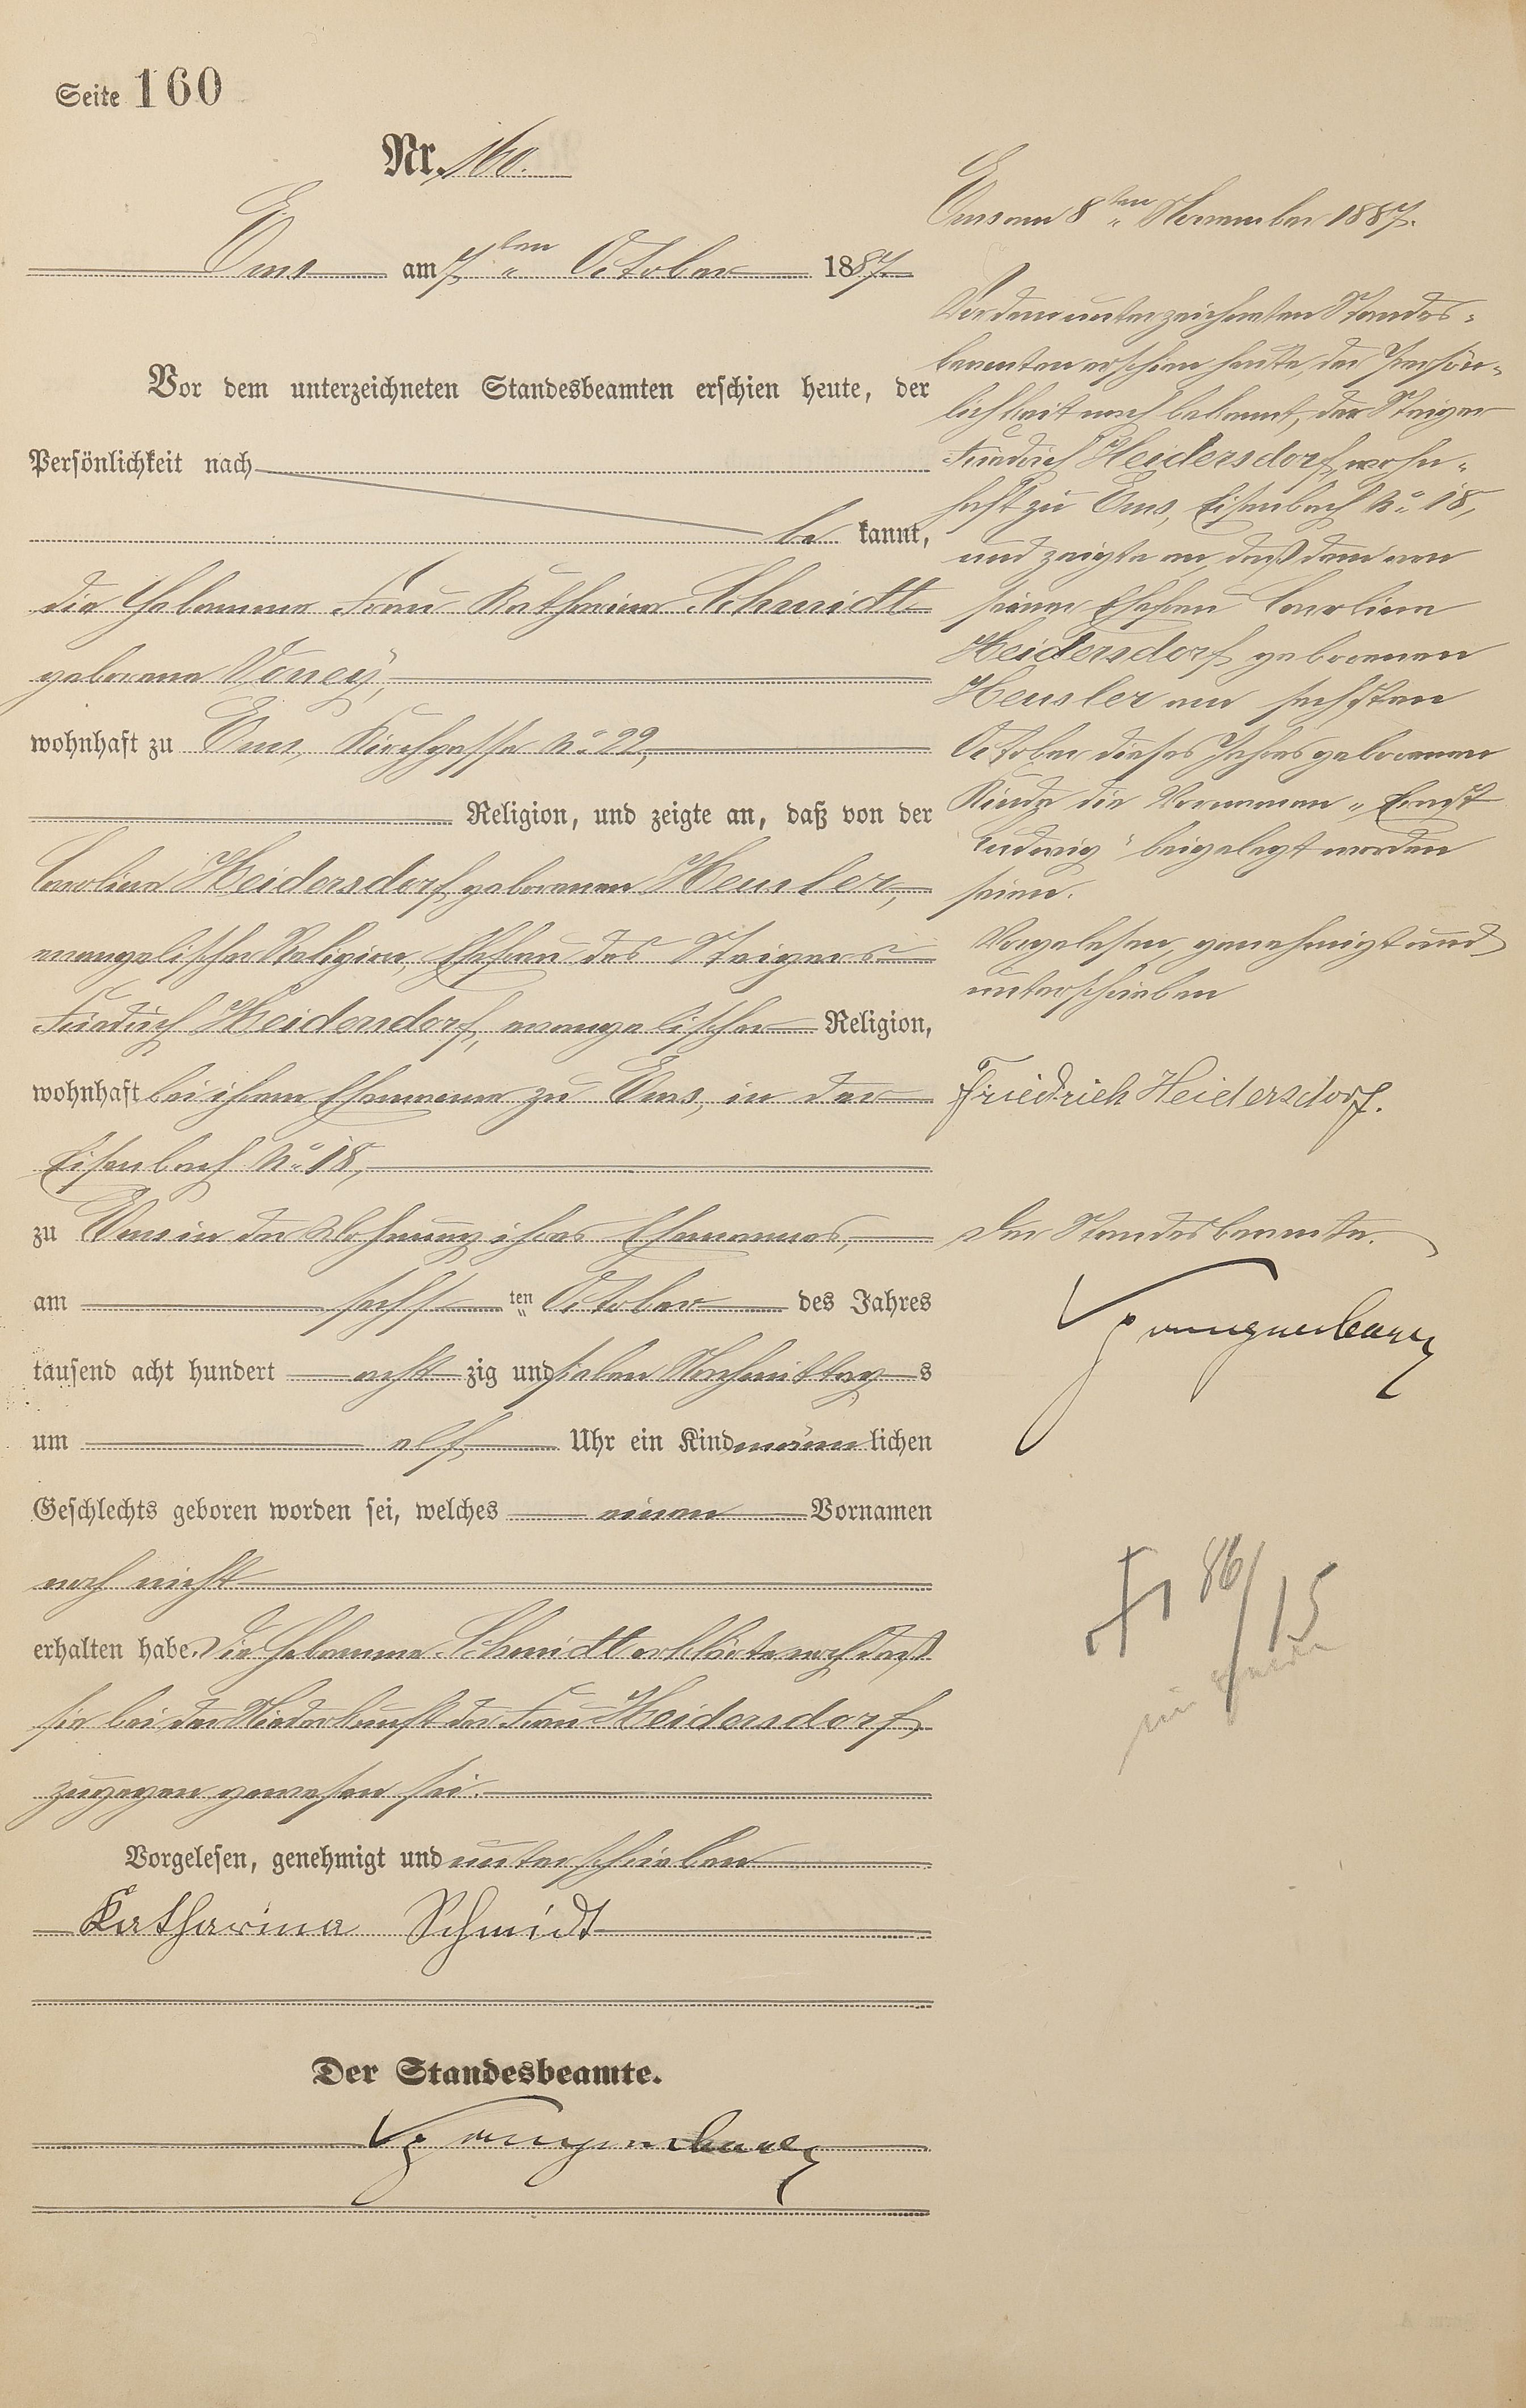 Seite 160
Nr. 160.
Ems am 7ten October 1887.
Vor dem unterzeichneten Standesbeamten erschien heute, der
Persönlichkeit nach
be kannt,
die Hebamme Frau Katharina Schmidt
geborene Voney,
wohnhaft zu Ems, Kirchgasse No. 22,
Religion, und zeigte an, daß von der
Carolina Heidersdorf geborenen Heusler,
evangelischer Religion, Ehefrau des Steigers
Friedrich Heidersdorf, evangelischer Religion,
wohnhaft bei ihrem Ehemanne zu Ems, in der
Eisenbach No. 18,
zu Ems in der Wohnung ihres Ehemannes,
am sechsten October des Jahres
tausend acht hundert acht zig und sieben Nachmittag s
um elf Uhr ein Kind männ lichen
Geschlechts geboren worden sei, welches einen Vornamen
noch nicht
erhalten habe. Die Hebamme Schmidt erklärte noch daß
sie bei der Niederkunft der Frau Heidersdorf
zugegen gewesen sei.
Vorgelesen, genehmigt und unterschrieben
Katharina Schmidt
Der Standesbeamte.
Ems am 8ten November 1887.
Vor dem unterzeichneten Standes-
beamten erschien heute, der Persön-
lichkeit nach bekannt, der Steiger
Friedrich Heidersdorf, wohn-
haft zu Ems, Eisenbach No. 18,
und zeigte an, daß dem von
seiner Ehefrau Caroline
Heidersdorf geborenen
Heusler am sechsten
October dieses Jahres geborenen
Kinde die Vornamen „Ernst
Ludwig" beigelegt worden
seien.
Vorgelesen, genehmigt und
unterschrieben
Friedrich Heidersdorf.
Der Standesbeamte.
86/15